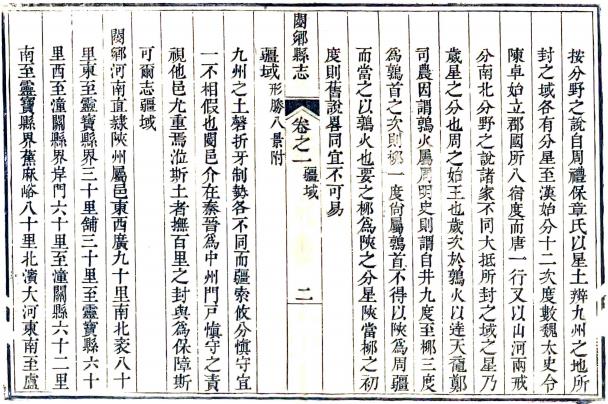 按分野之說自周禮保章氏以星土辨九州之地所
封之域各有分星至漢始分十二次度數魏太史令
陳卓始立郡國所入宿度而唐一行又以山河兩戒
分南北分野之說諸家不同大抵所封之域之星乃
歲星之分也周之始王也歲次於鶉火以達天黿鄭
司農因謂鶉火屬周明史則謂自井九度至栁三度
為鶉首之次則栁一度尙屬鶉首不得以陝為周疆
而當之以鶉火也要之栁為陝之分星陝當栁之初
度則舊說畧同宜不可易
疆域形勝八景附
閿鄉縣志
卷之一 疆域
二
九州之土磬折牙制勢各不同而疆索攸分慎守宜
一不相假也閿邑介在秦晉為中州門戸慎守之責
視他邑尤重焉涖斯土者撫百里之封與為保障斯
可爾志疆域
閿鄉河南直隷陝州屬邑東西廣九十里南北袤八十
里東至靈寶縣界三十里舖三十里至靈寶縣六十
里西至潼關縣界岸門六十里至潼關縣六十二里
南至靈寶縣界蕉麻峪八十里北濱大河東南至盧